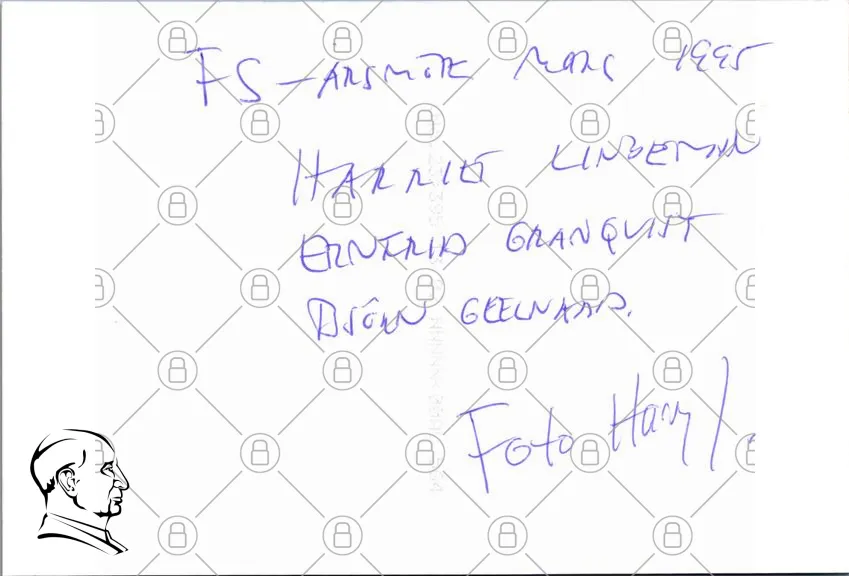 FS - ÅRSMÖTE MARS 1995
HARRIET LINDEMAN
ERNFRID GRANQVIST
BJÖRN
Foto Harry